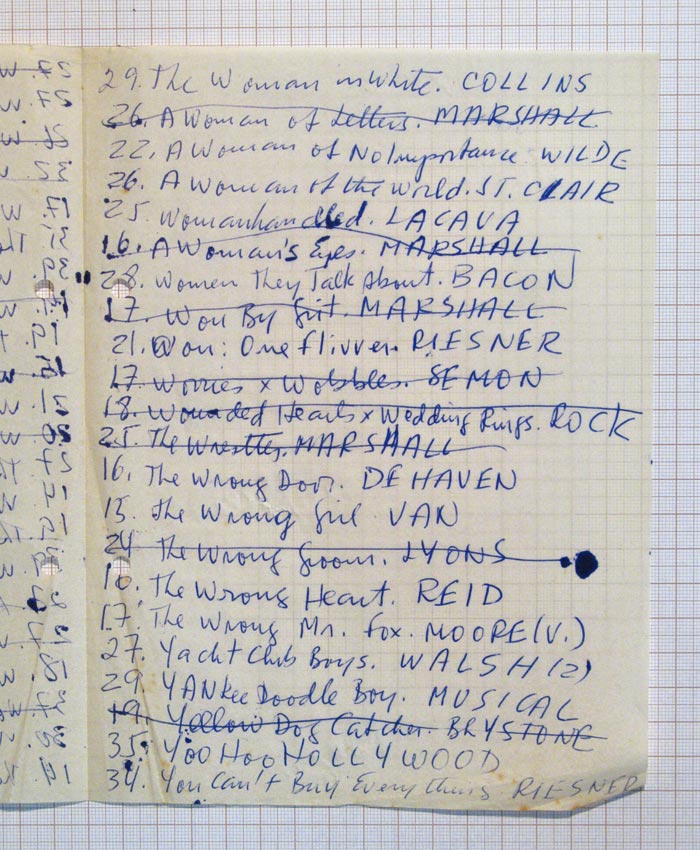 29. The Woman in White. COLLINS
26. A Woman of Letters. MARSHALL
22. A Woman of No Importance WILDE
26. A Woman of the World. ST. CLAIR
25. Womanhandled. LACAVA
16. A Woman's Eyes. MARSHALL
28. Women They Talk About. BACON
17. Won By Grit. MARSHALL
21. Won: One Flivver. RIESNER
17. Worries x Wobbles. SEMON
18. Wounded Hearts x Wedding Rings. ROCK
25. The Wrestler. MARSHALL
16. The Wrong Door. DE HAVEN
15. The Wrong Girl VAN
24 The Wrong Groom. LYONS
16. The Wrong Heart. REID
17. The Wrong Mr. Fox. MOORE (V.)
27. Yacht Club Boys. WALSH (2)
29. YANkee Doodle Boy. MUSICAL
19. Yellow Dog Catcher. BRYSTONE
35. YOO HOO HOLLYWOOD
34. You Can't Buy Everything RIESNER